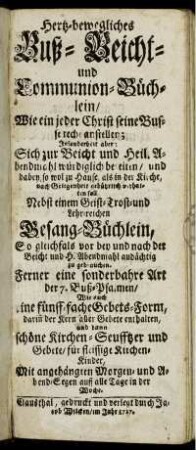 Hertz-bewegliches
Buß- Beicht-
und
Communion-Büch-
lein/
Wie ein jeder Christ seine Bus-
se recht anstellen;
Insonderheit aber:
Sich zur Beicht und Heil. A-
bendmahl würdiglich bereiten/ und
dabey, so wol zu Hause, als in der Kirche,
nach Gelegenheit gebührlich verhal-
ten soll.
Nebst einem Geist- Trost- und
Lehr-reichen
Gesang-Büchlein,
So gleichfals vor bey und nach der
Beicht und H. Abendmahl andächtig
zu gebrauchen.
Ferner eine sonderbahre Art
der 7. Buß-Psalmen/
Wie auch
eine fünff-fache Gebets-Form,
darin der Kern aller Gebete enthalten,
und dann
schöne Kirchen-Seuffzer und
Gebete/ für fleissige Kirchen-
Kinder,
Mit angehängten Morgen- und A-
bend-Segen auff alle Tage in der
Woche.
Clausthal, gedruckt und verlegt durch Ja-
cob Wilcken/ im Jahr